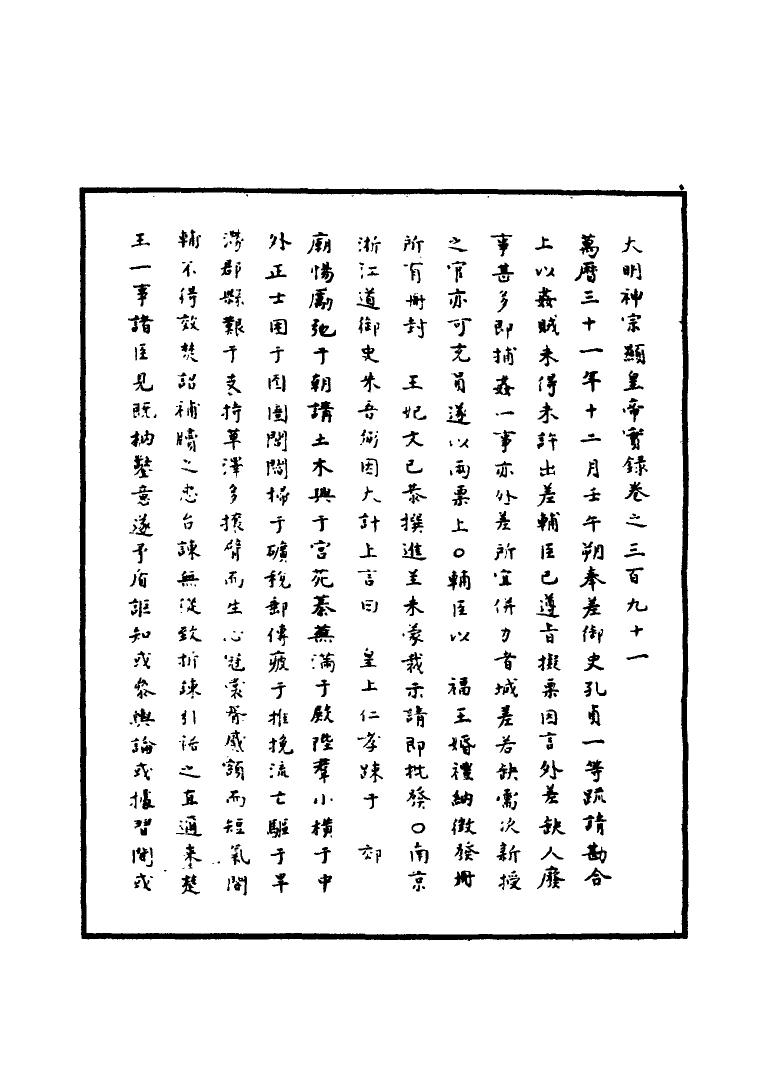 大明神宗顯皇帝實錄卷之三百九十一
萬曆三十一年十二月壬午朔奉差御史孔貞一等疏請勘合
上以姦賊未得未許出差輔臣已遵旨擬票因言外差缺人廢
事甚多即捕姦一事亦外差所宜併力者城差若缺需次新授
之官亦可充員遂以兩票上○輔臣以　福王婚禮納徵發冊
所有冊封　王妃文已恭撰進呈未蒙裁示請即批發○南京
浙江道御史朱吾弼因大計上言曰　皇上仁孝踈于　郊
廟惕厲弛于朝講土木興于宮苑綦蕪滿于殿陛羣小橫于中
外正士困于囹圄閭閻掃于礦稅郵傳疲于推挽流亡驅于旱
潦郡縣艱于支持草澤多攘臂而生心冠裳脊慼額而短氣閣
輔不得效焚詔補牘之忠台諫無從致折踈引裾之直邇來楚
王一事諸臣見既枘鑿意遂矛盾詎知或參輿論或據習聞或